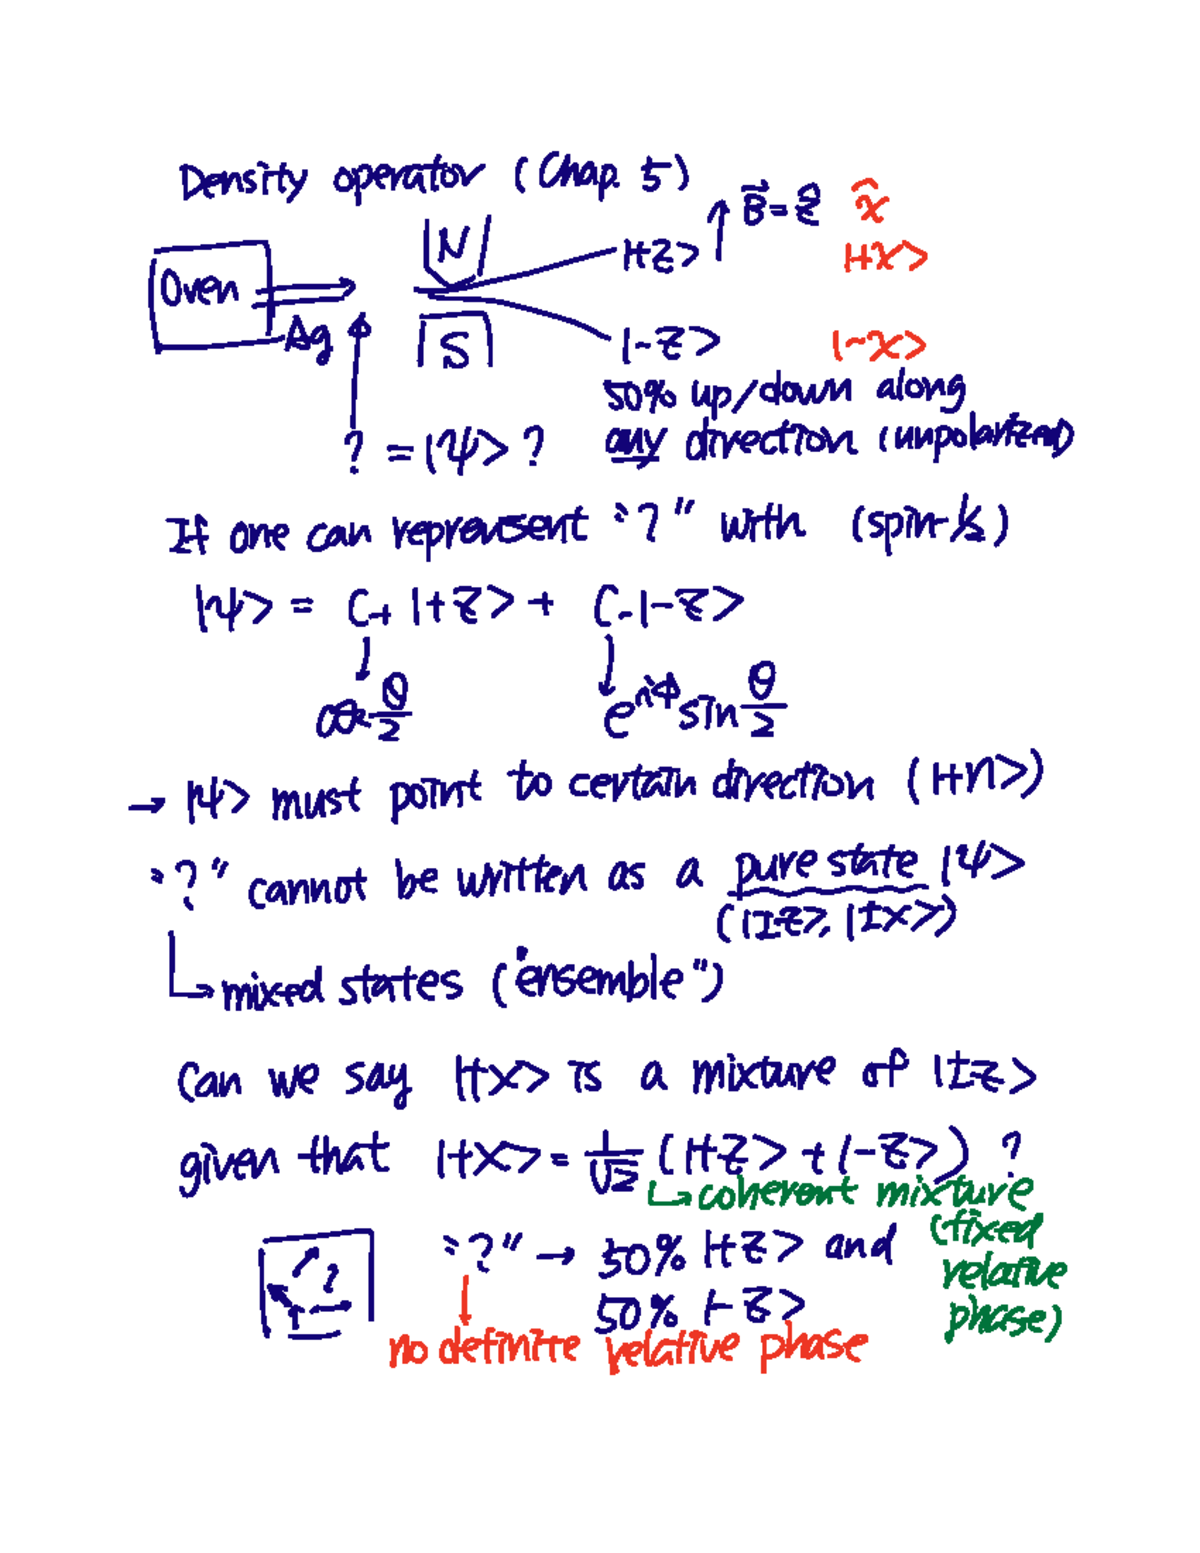 Density operator (Chap. 5)
B⃗ = ẑ x̂
N
|+z> |+x>
Oven
Ag
S
|-z> |-x>
50% up/down along
any direction (unpolarized)
? = |ψ> ?
If one can represent "?" with (spin-1/2)
|ψ> = C+ |+z> + C- |-z>
cos θ/2 e^iφ sin θ/2
→ |ψ> must point to certain direction (|+n>)
"?" cannot be written as a pure state |ψ>
(|±z>, |±x>)
↳ mixed states ("ensemble")
Can we say |+x> is a mixture of |±z>
given that |+x> = 1/√2 (|+z> + |-z>) ?
↳ coherent mixture
(fixed
relative
phase)
?
"?" → 50% |+z> and
50% |-z>
no definite relative phase